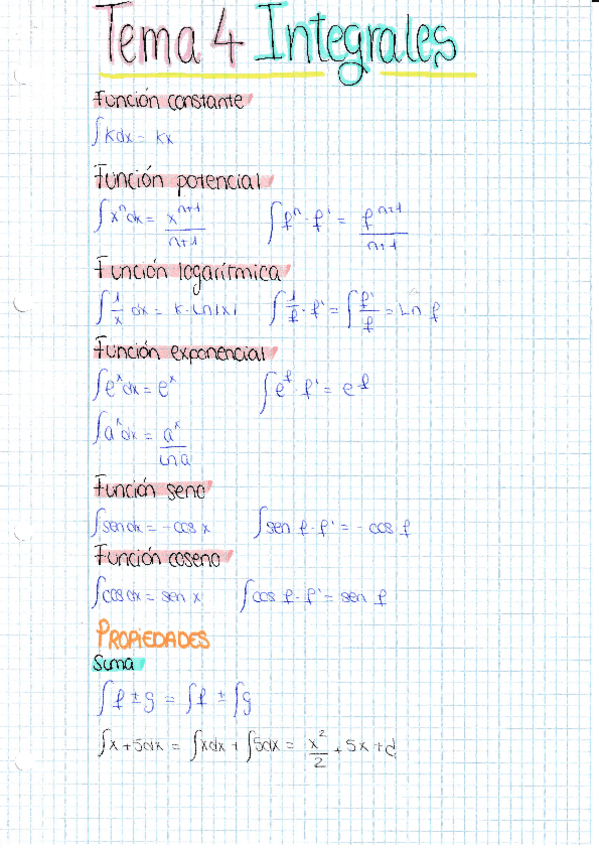 Tema 4 Integrales
Función constante
∫kdx = kx
Función potencial
∫xⁿdx = xⁿ⁺¹/n+1    ∫fⁿ · f' = fⁿ⁺¹/n+1
Función logarítmica
∫1/x dx = k·Ln|x|    ∫1/f · f' = ∫f'/f = Ln f
Función exponencial
∫eˣdx = eˣ    ∫eᶠ · f' = eᶠ
∫aˣdx = aˣ/Ln a
Función seno
∫sen dx = -cos x    ∫sen f · f' = - cos f
Función coseno
∫cos dx = sen x    ∫cos f · f' = sen f
PROPIEDADES
Suma
∫f ± g = ∫f ± ∫g
∫x + 5dx = ∫xdx + ∫5dx = x²/2 + 5x + d